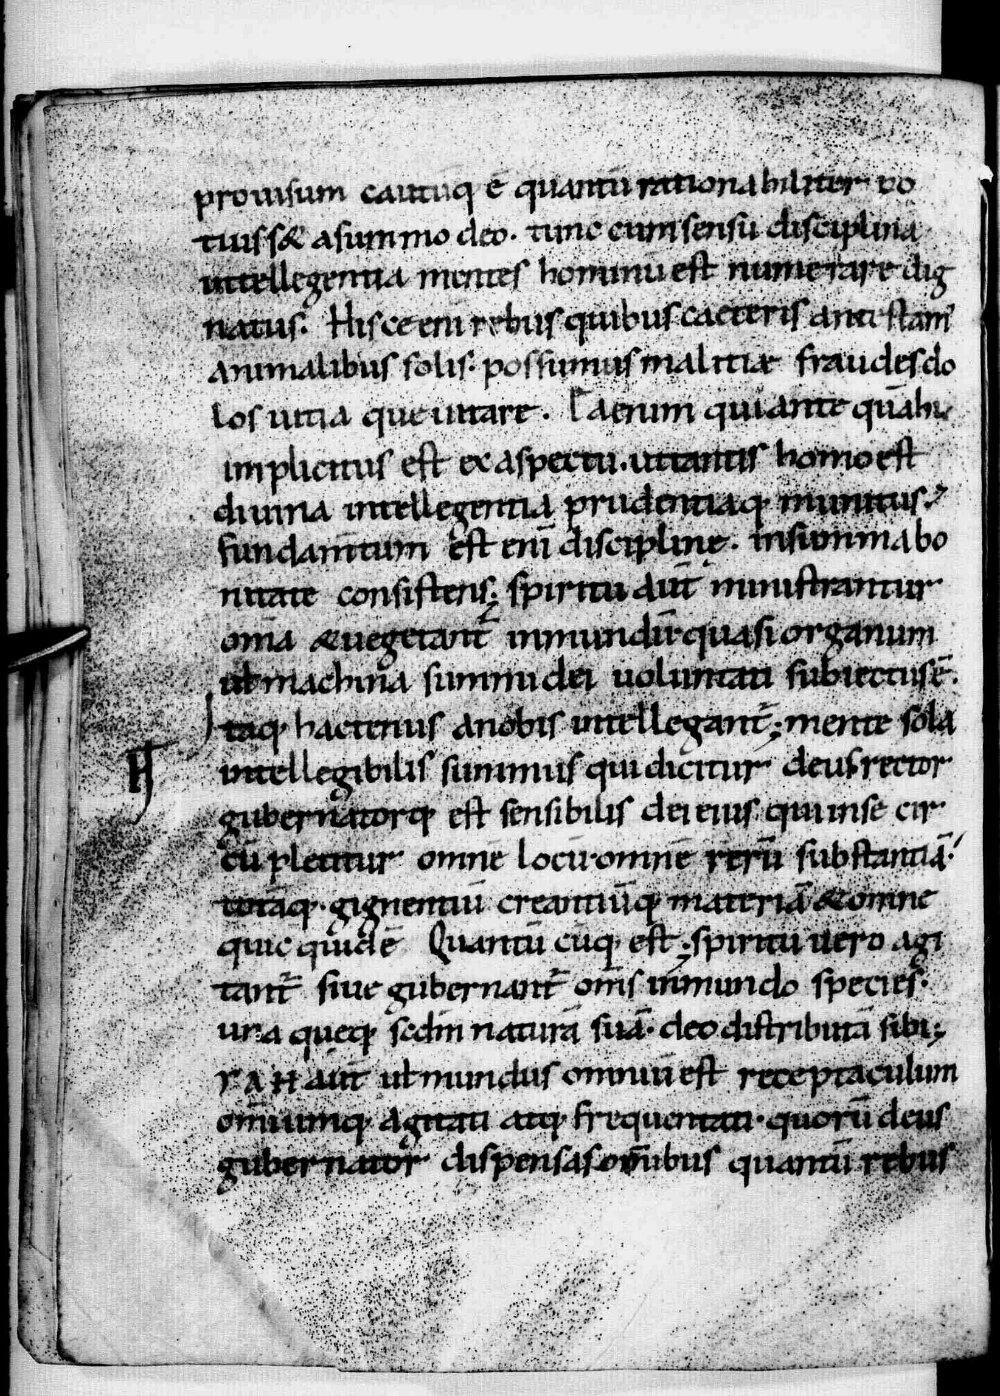 prouisum cautūq ē quantū rationabiliter po
tuiss& asummo deo. tunc cum sensū disciplina
intellegentia mentes hominū est numerare dig
natus. Hisce eni rebus quibus caeteris antistam
animalibus solis. possumus malitiæ fraudes do
los uitia que uitare. Caetrum qui ante quā his
implicitus est ex aspectu. uitantis homo est
diuina intellegentia prudentiaq munitus.
fundam̄tum est eni discipline. insumma bo
nitate consistens; spiritu aut̄ ministrantur
om̄a & uegetant̄ inmundū quasi organum
ut machina summi dei uoluntati subiectus ē.
Itaq hactenus anobis intellegant̄; mente sola
intellegibilis summus qui dicitur deus rector
gubernatorq est sensibilis dei eius. qui inse cir
cū plectitur omnē locū omnē rerū substantiā.
totāq. gignentiū creantiūq materiā & omne
quic quid ē Quantū cūq est; spiritu uero agi
tant̄ siue gubernant̄ om̄s inmundo species.
una queq scdm naturā suā. deo distributā sibi;
ΥΛΗ aut̄ ut mundus omniū est receptaculum
om̄iumq agitati atq frequentati. quorū deus
gubernator dispensas om̄ibus quantū rebus